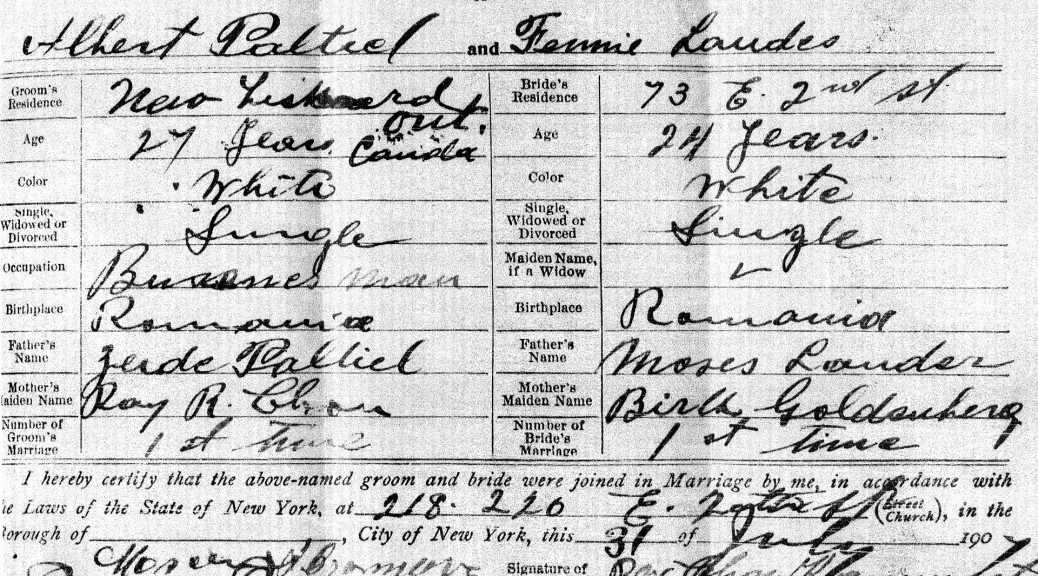 Albert Paltiel and Fennie Landes
Groom's Residence New Liskeard Ont. Canada Bride's Residence 73 E. 2nd st
Age 27 Years Age 24 Years
Color White Color White
Single, Widowed or Divorced Single Single, Widowed or Divorced Single
Occupation Business man Maiden Name, if a Widow
Birthplace Romania Birthplace Romania
Father's Name Paltiel Father's Name Moses Lander
Mother's aiden Name Ray R. Mother's Maiden Name Goldenberg
Number of Groom's Marriage 1st time Number of Bride's Marriage 1st time
I hereby certify that the above-named groom and bride were joined in Marriage by me, in accordance with
he Laws of the State of New York, at 218. 220 E. (Street Church), in the
orough of , City of New York, this 31 of July 1907
Signature of